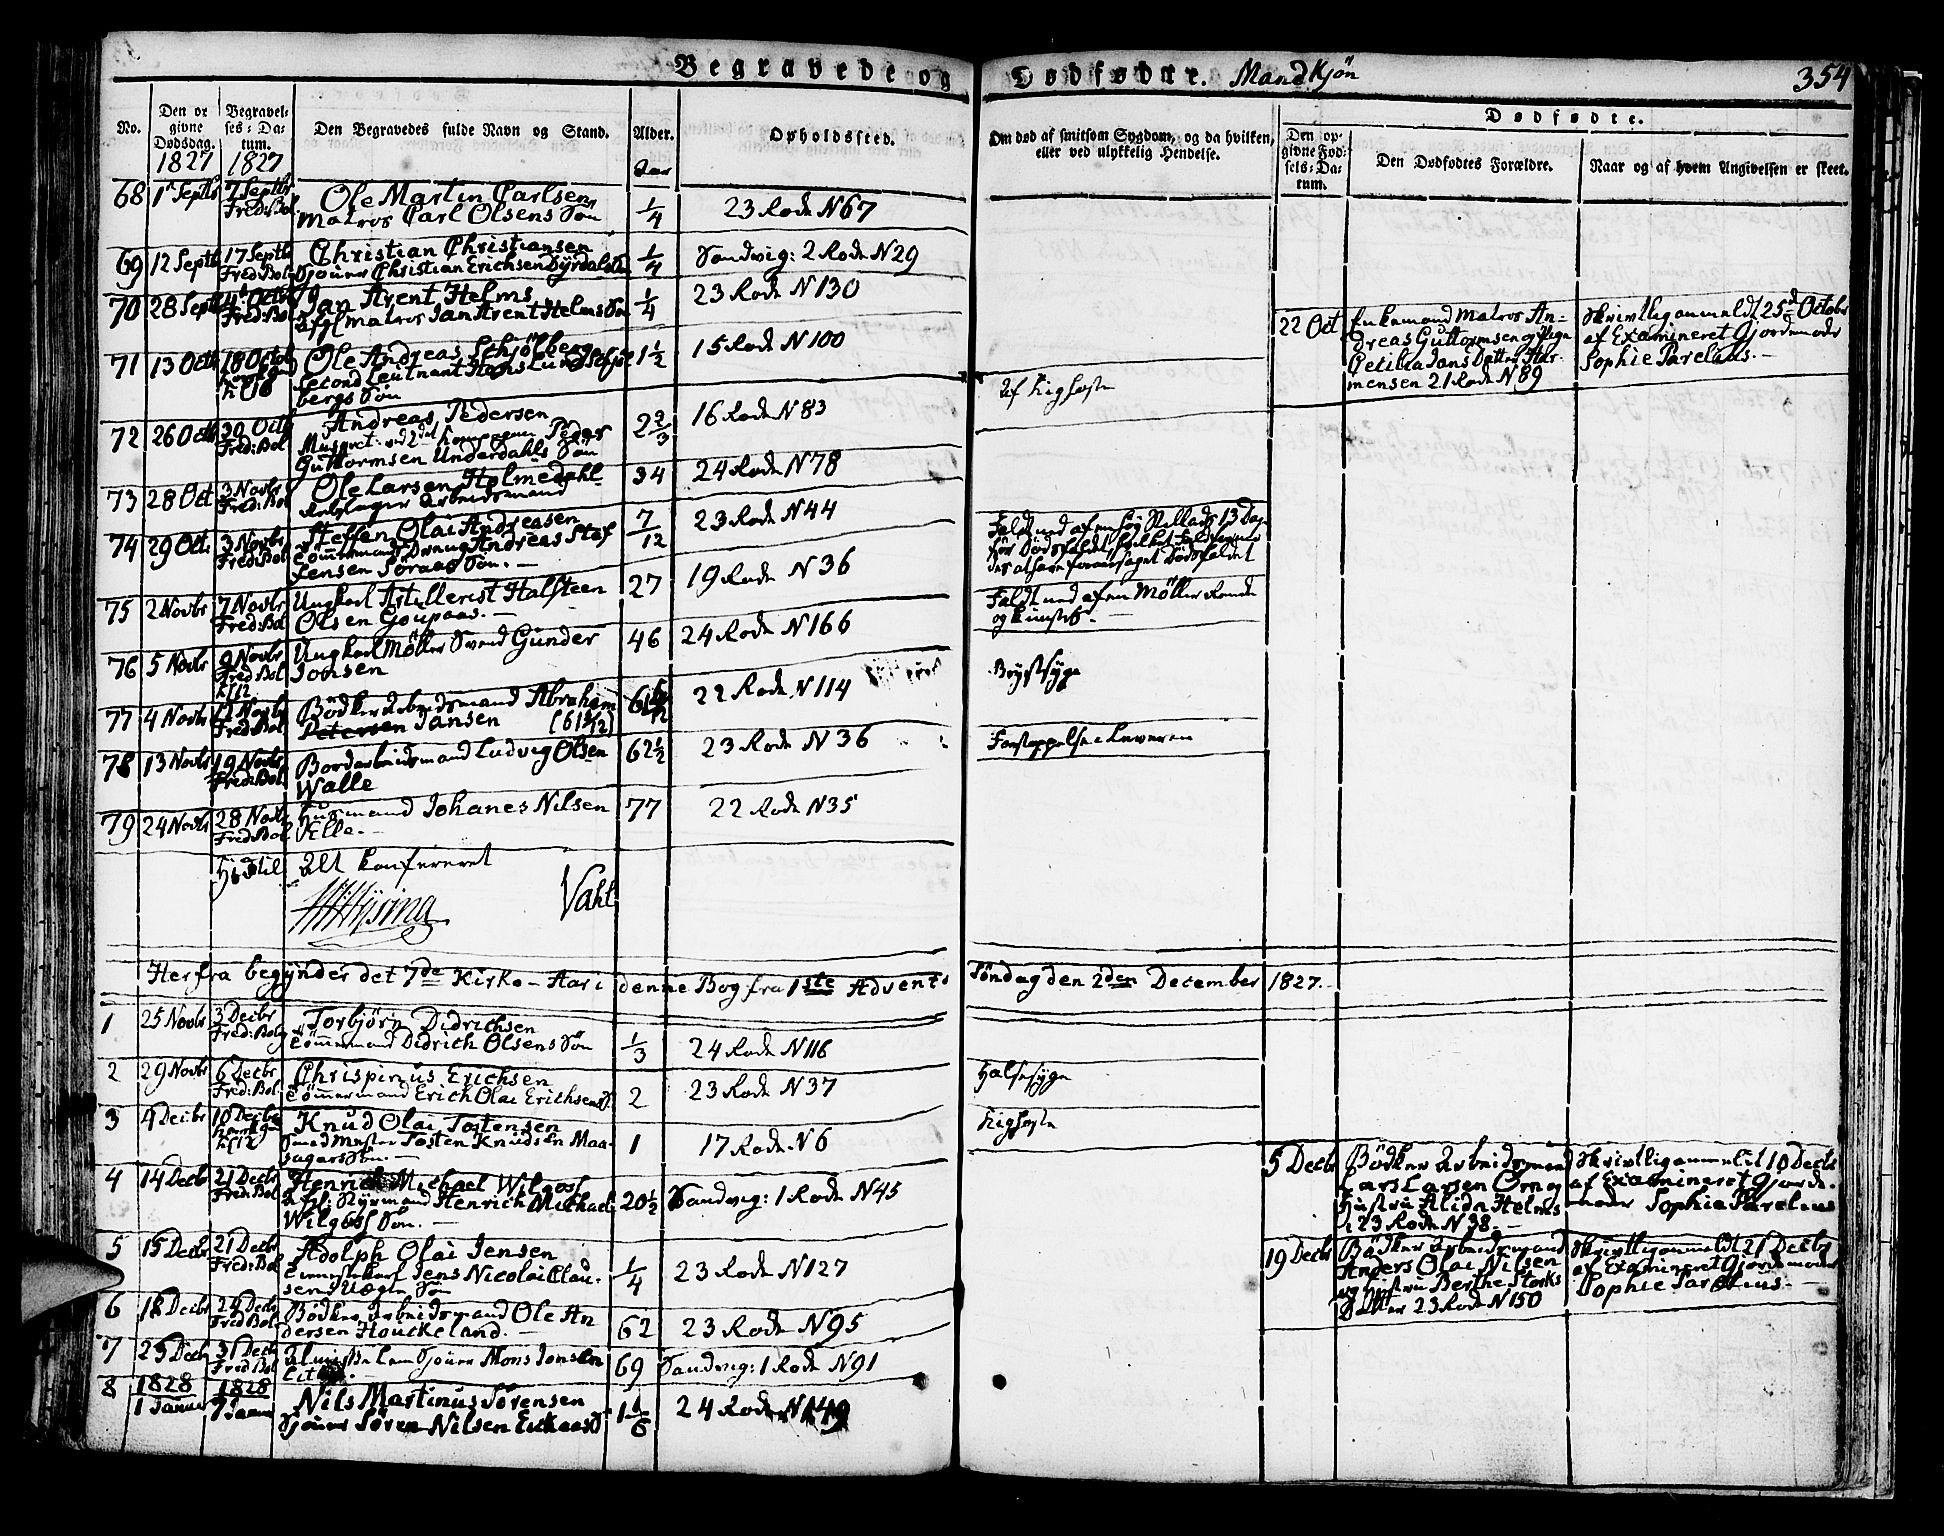 Begravede og Dødfødte. Mandkjøn 354
No.
Den opgivne Dødsdag. 1827
Begravelses-Datum. 1827
Den Begravedes fulde Navn og Stand.
Alder.
Aar
Opholdssted.
Om død af smitsom Sygdom, og da hvilken,
eller ved ulykkelig Hendelse.
Dødfødte.
Den opgivne Fødsels-Datum.
Den Dødfødtes Forældre.
Naar og af hvem Angivelsen er skeet.
68 1 Septbr 7 Septbr Fred:Bol Ole Martin Carlsen
Matros Carl Olsens Søn 1/4 23 Rode N 67
69 12 Septb 17 Septb Fred:Bol Christian Christiansen
Sjouer Christian Erichsen Dyrdals Søn 1/4 Sandvig: 2 Rode N 29
70 28 Septb 4 Octb Fred:Bol Jan Arent Helms
Afgl Matros Jan Arent Helms Søn 1/4 23 Rode N 130
71 13 Octb 18 Octob Ole Andreas Schjølberg
Second Leutnant Hans Lund Schjøl
bergs Søn 1 1/2 15 Rode N 100
72 26 Octb 30 Octb Fred:Bol Andreas Pedersen
Peder
Guttormsen Underdahls Søn 2 2/3 16 Rode N 83
Af Kighoste
73 28 Oct 3 Novbr Fred:Bol Ole Larsen Holmedahl
Arbeidsmand 34 24 Rode N 78
74 29 Oct: 3 Novbr Fred:Bol Steffen Olai Andreasen
Tømmermands Andreas Stef
fensen Søraas Søn. 7/12 23 Rode N 44
Faldt ned af en høy Stillads 13 Dage
før Dødsfaldet, hvilket Fald
75 2 Novbr 7 Novbr Fred:Bol Ungkarl Artillerist Halsteen
Olsen Goupaas. 27 19 Rode N 36
Faldt ned af en Møller Rende
og
76 5 Novbr 9 Novbr Fred:Bol Kl 12 Ungkarl Møller Svend Gunder
Jonsen 46 24 Rode N 166
Brystsyge
77 4 Novbr 12 Novbr Fred:Bol Bødker Arbeidsmand Abraham
Petersen Jansen 22 Rode N 114
78 13 Novbr 19 Novbr Fred:Bol Bordarbeidsmand Ludvig Olsen
Walle 62 1/2 23 Rode N 36
Forstoppelse i Leveren
79 24 Novbr 28 Novb Fred:Bol Huusmand Johanes Nilsen
Velle. 77 22 Rode N 35
Hidtil Alt konfereret
Vahl
22 Oct Enkemand Matros An-
dreas Guttormsen og Pige
Petikia Jans Datter Har-
mensen 21 Rode N 89
Skrivtlig anmeldt 25d Octobr
af Examineret Gjordemoder
Sophie Parelius.
Her fra begynder det 7de Kirke-Aar i denne Bog fra 1ste Advents Søndag den 2den December 1827.
1 25 Novbr 3 Decbr Fred:Bol Torbjørn Didrichsen
Tømmermand Didrich Olsens Søn 1/3 24 Rode N 116
2 29 Novbr 6 Decbr Fred:Bol Chrispinus Erichsen
Tømmermand Erich Olai Erichsens S. 2 23 Rode N 37
Halsesyge
3 4 Decbr 10 Decbr Kl 12 Knud Olai Tostensen
Smed Mester Tosten Knudsen Maa-
sagers Søn. 1 17 Rode N 6
Kighoste
4 14 Decbr 21 Decbr Fred:Bol Henrich Michael Wilgoss
Afgl: Styrmand Henrich Michael
Wilgoss Søn. 20 1/2 Sandvig: 1 Rode N 45
5 15 Decbr 21 Decbr Fred:Bol Adolph Olai Jensen
Jens Nicolai Clau-
sen Søn 1/4 23 Rode N 127
6 18 Decbr 24 Decbr Fred:Bol Bødker Arbeidsmand Ole An
dersen Houckeland. 62 23 Rode N 95
7 25 Decb 31 Decb Fred:Bol Sjouer Mons Jonsen
69 Sandvig: 1 Rode N 91
8 1828 1 Januar 1828 7 Januar Nils Martinus Sørensen
Sjouer Søren Nilsen S. 1 1/6 24 Rode N 149
5 Decbr Bødker Arbeidsmand
Lars Larsen Ørn og
Hustru Alida Helms
i 23 Rode N 38.
Skrivtlig anmeldt 10 Decbr
af Examineret Gjorde-
moder Sophie Parelius
19 Decbr Bødker Arbeidsmand
Anders Olai Nilsen
og Hustru Berthe Storks
Datter 23 Rode N 150
Skrivtlig anmeldt 21 Decbr
af Examineret Gjordemoder
Sophie Parelius.